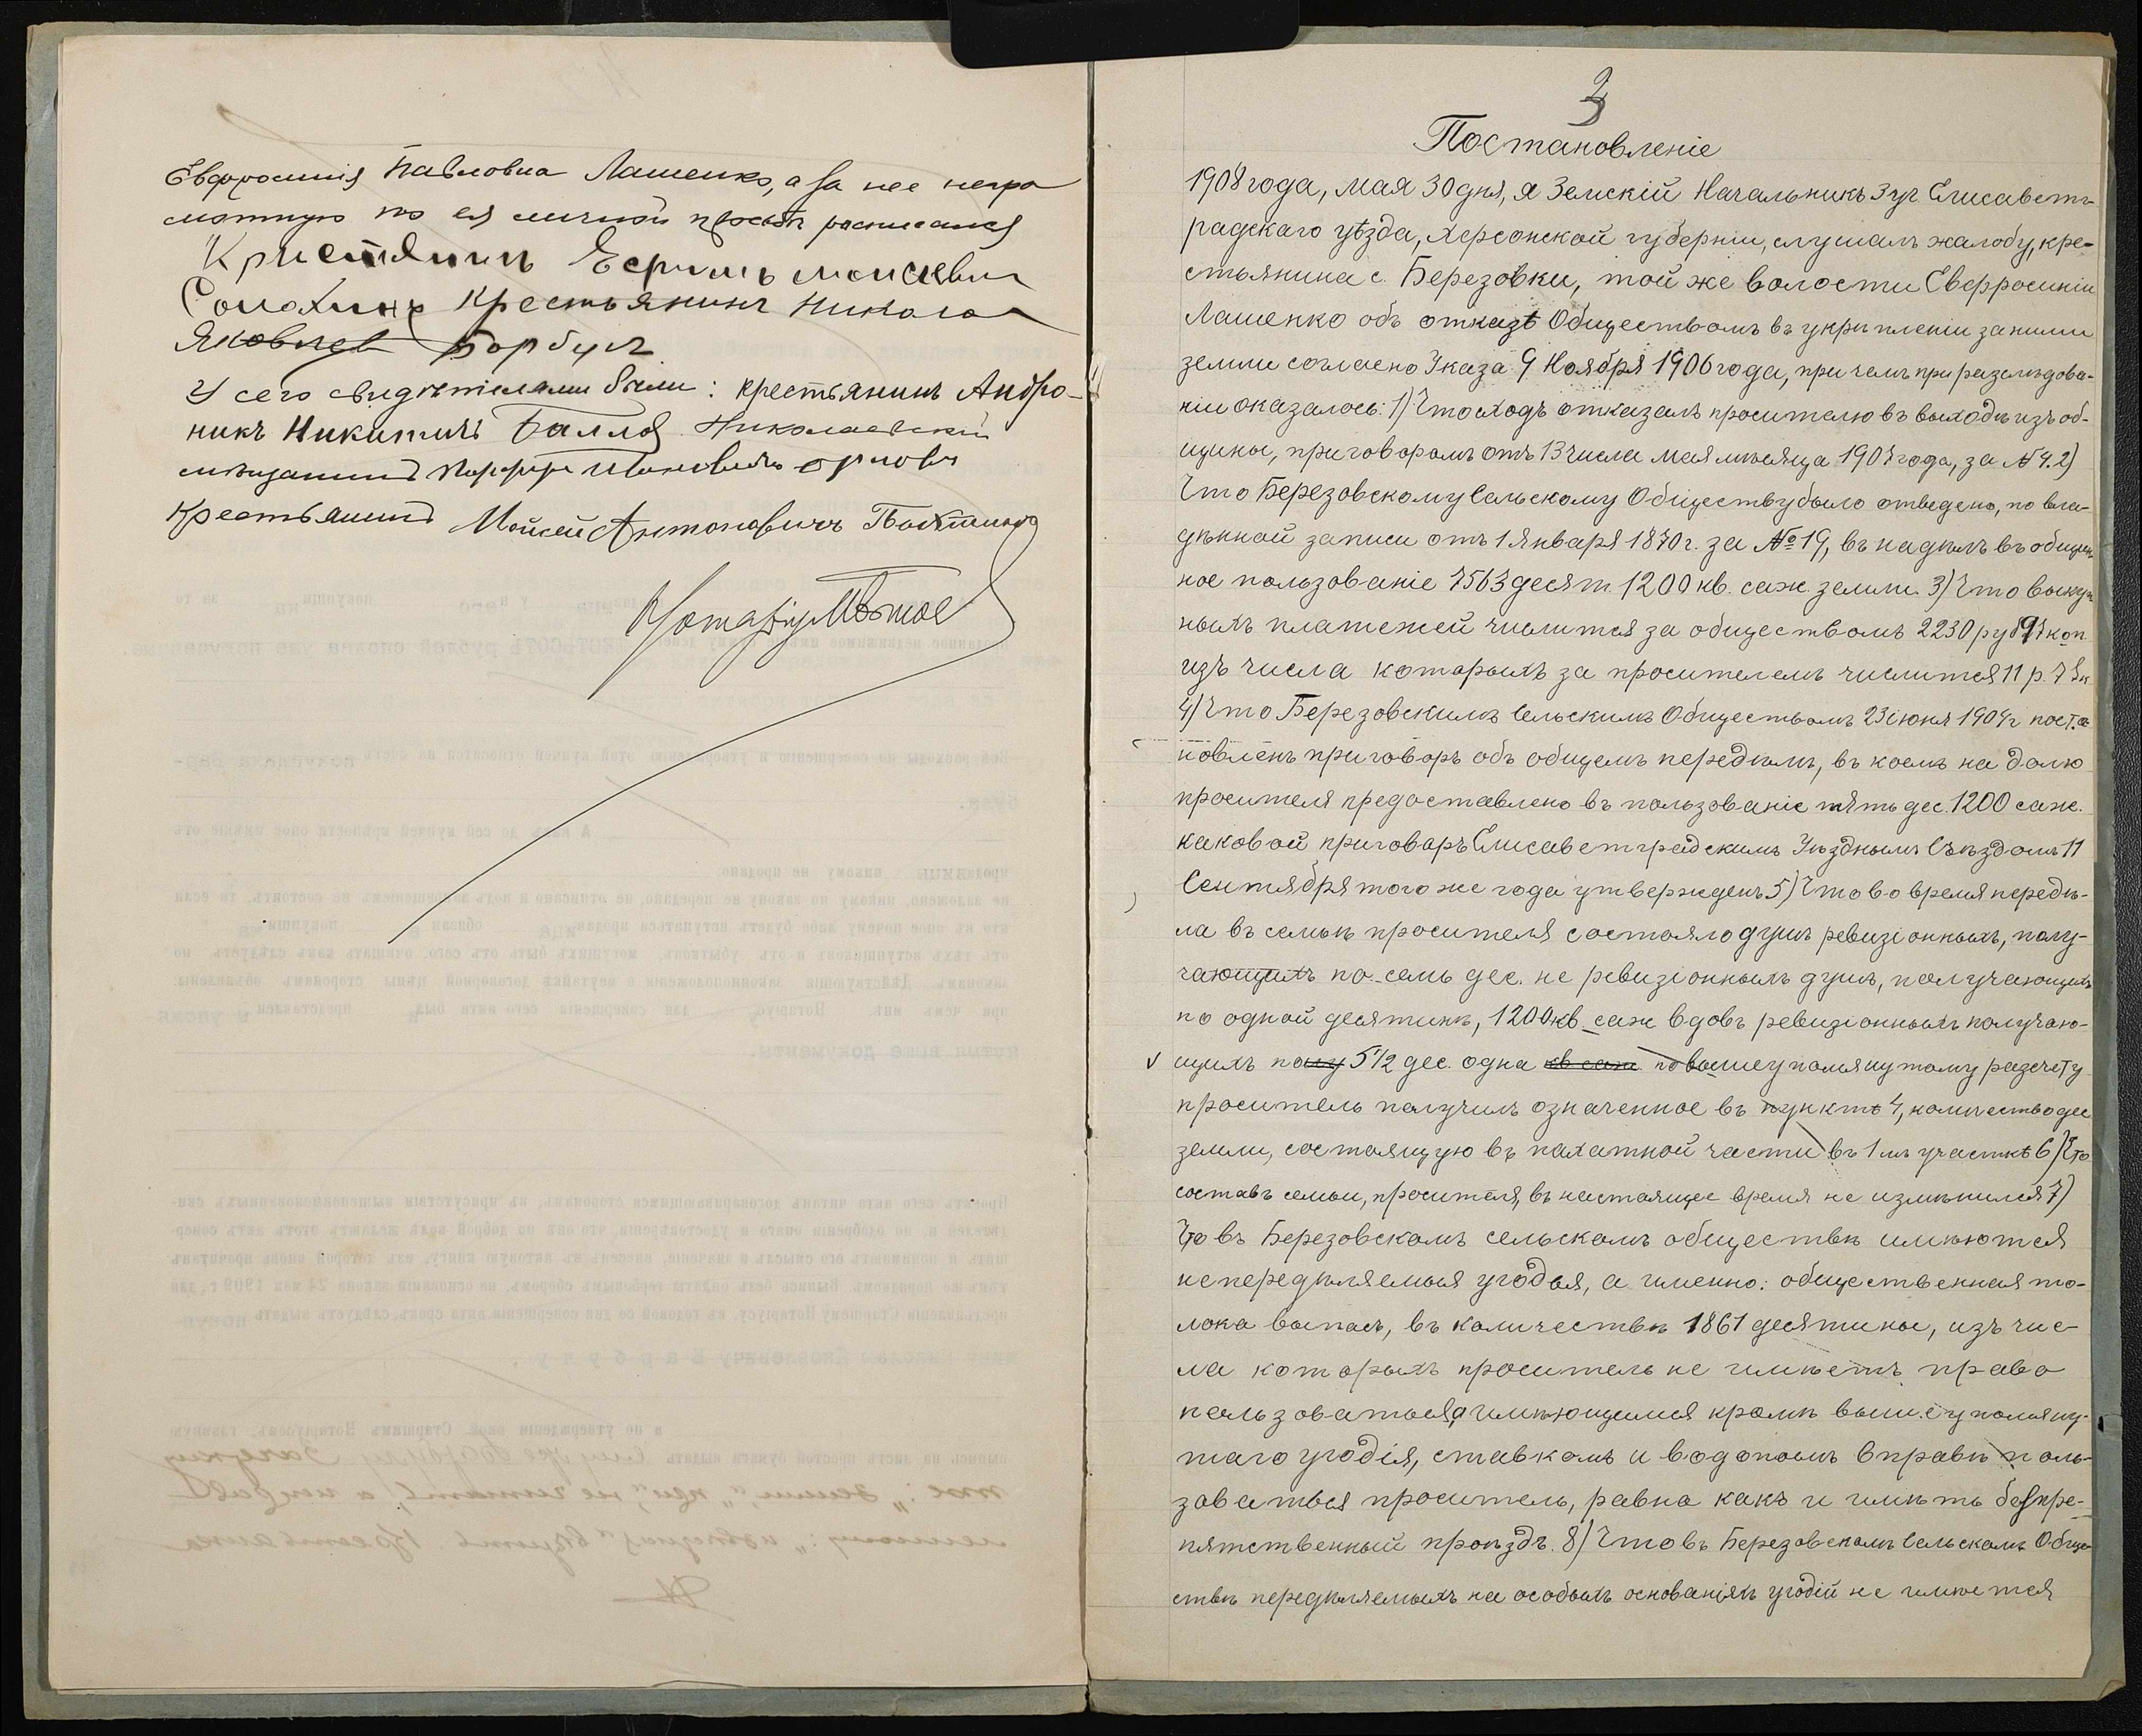 Евфросинія Павловна Лашенко, а за нее негра
мотную по ея личной просьбѣ росписался
Кристянинъ Ефимъ моисѣевич
Сомохинъ крестьянинъ Никола
Яковлев Борбулъ
У сего свидѣтелями были: крестьянинъ Андро-
никъ Никитичъ Балла Николаевскій
мѣщанинъ Порфирій Ивановичъ Орловъ
Крестьянинъ Мойсей Антоновичъ
Нотаріусъ
3
Постановленіе
1908 года, мая 30 дня, я Земскій Начальникъ 3 уч. Елисаветг-
радскаго уѣзда, Херсонской губерніи, слушалъ жалобу, кре-
стьянина с. Березовки, той же волости Евфросиніи
Лашенко объ отказѣ Обществомъ въ укрѣпленіи за ними
земли согласно Указа 9 Ноября 1906 года, при чемъ при разслѣдова-
ніи оказалось: 1) Что сходъ отказалъ просителю въ выходѣ изъ об-
щины, приговоромъ отъ 13 числа мая мѣсяца 1908 года, за № 4. 2)
Что Березовскому Сельскому Обществу было отведено, по вла-
дѣнной записи отъ 1 Января 1870 г. за № 19, въ надѣлъ въ общин-
ное пользованіе 7563 десят. 1200 кв. саж. земли. 3) Что выкуп
ныхъ платежей числится за обществомъ 2230 руб 91 коп
изъ числа которыхъ за просителемъ числится 11 р. 78 к
4) Что Березовскимъ Сельскимъ Обществомъ 23 іюня 1904 г поста
новленъ приговоръ объ общемъ передѣлѣ, въ коемъ на долю
просителя предоставлено въ пользованіе пять дес. 1200 саж.
каковой приговоръ Елисаветградскимъ Уѣзднымъ Съѣздомъ 11
Сентября того же года утвержденъ 5) Что во время передѣ-
ла въ семьѣ просителя состояло душъ ревизіонныхъ, полу-
чающихъ по семь дес. не ревизіонныхъ душъ, получающихъ
по одной десятинѣ, 1200 кв. саж вдовъ ревизіонныхъ получаю-
щихъ по 5 1/2 дес. одна кв саж по вышеупомянутому разсчету
проситель получилъ означенное въ пунктѣ 4, количество дес
земли, состоящую въ пахатной части въ 1 мъ участкѣ 6) Что
составъ семьи, просителя, въ настоящее время не измѣнился 7)
Что въ Березовскомъ сельскомъ обществѣ имѣются
непередѣляемыя угодья, а именно: общественная то-
лока выпасъ, въ количествѣ 1861 десятины, изъ чис-
ла которыхъ проситель не имѣетъ право
пользоваться, а имѣющимся кромѣ вышеупомяну-
таго угодія, ставкомъ и водопоемъ вправѣ поль-
зоваться проситель, равно какъ и имѣть безпре-
пятственный проѣздъ. 8) Что въ Березовскомъ Сельскомъ Обще-
ствѣ передѣляемыхъ на особыхъ основаніяхъ угодій не имѣется